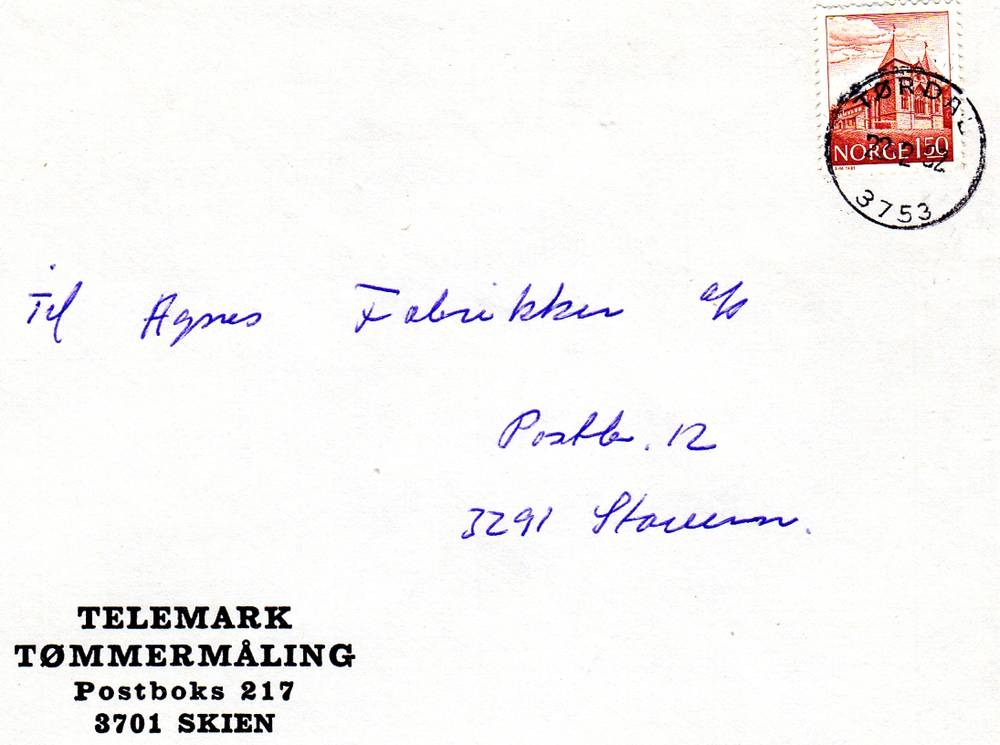 NORGE 150
TØRDAL
22.2.82
3753
Til Agnes Fabrikker a/s
Postb. 12
3291 Stavern.
TELEMARK
TØMMERMÅLING
Postboks 217
3701 SKIEN